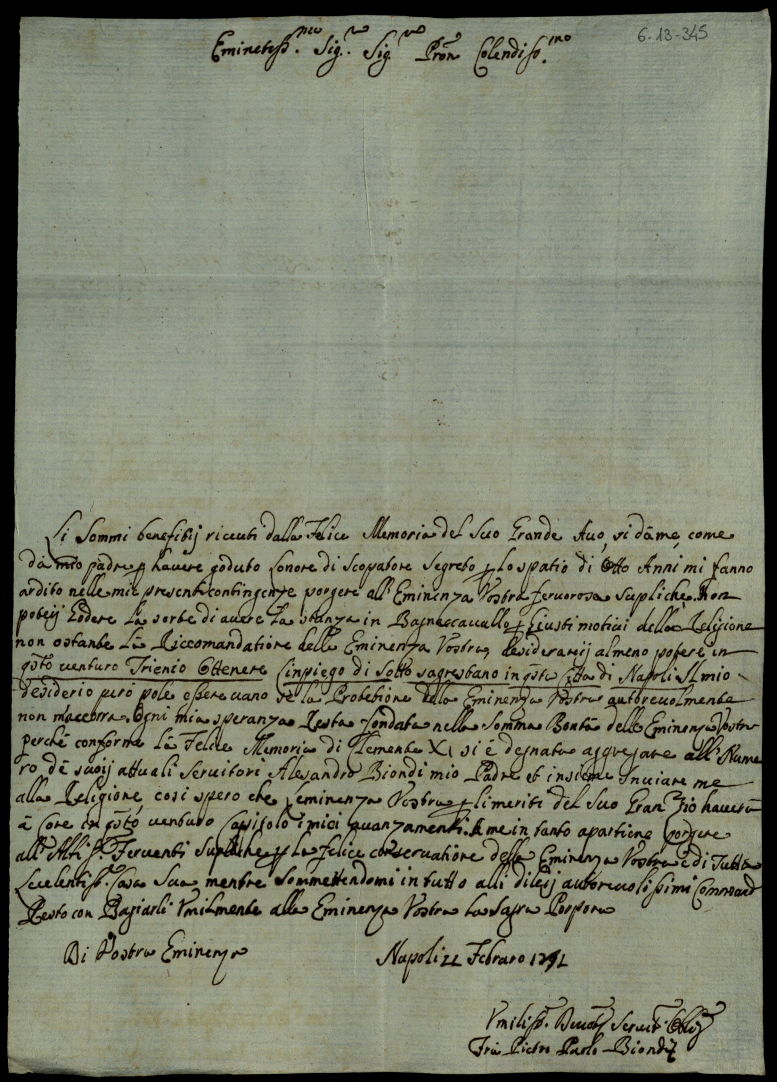 6-13-345
Eminetiss.mo Sig.re Sig.re Pron Colendiss.mo
Li Sommi benefitij riceuti dalla Felice Memoria del Suo Grande Auo, si dà me come
dà mio padre p hauere goduto l'onore di Scopatore Segreto p lo spatio di Otto Anni mi fanno
ardito nelle mie presenti contingenze porgere all'Eminenza Vostra feruorose supliche. Non
poteij Godere La sorte di auere La stanza in Bagnacauallo p Giusti motiui della Religione
non ostante La Riccomandatione della Eminenza Vostra, desiderarij almeno potere in
qsto venturo Trienio Ottenere l'inpiego di Sotto sagrestano in qsta Città di Napoli. Il mio
desiderio però pole essere uano se la Protetione della Eminenza Vostra autoreuolmente
non m'accorra. Ogni mia speranza Resta fondata nella Somma Bontà della Eminenza Vostra
perchè conforme La Felice Memoria di Clemente XI si è degnata aggregare all' Nume
ro de suoij attuali Seruitori Alesandro Biondi mio Padre et insieme inuiare me
alla Religione così spero che l'eminenza Vostra p li meriti del Suo Gran Zio hauerà
à Core in qsto venturo Capitolo i miei auanzamenti. A me in tanto apartiene porgere
all' Altiss. Feruenti Supliche p la felice conseruatione della Eminenza Vostra e di Tutta
Ecelentiss. Casa Sua, mentre Sommettendomi in tutto alli di leij autoreuolissimi Command
Resto con Bagiarli Vmilmente alla Eminenza Vostra La Sagra Porpora
Di Vostra Eminenza
Napoli 22 Febraro
Vmiliss. Deuot. Seruit. Oblig.
Fra Pietro Paolo Biondi